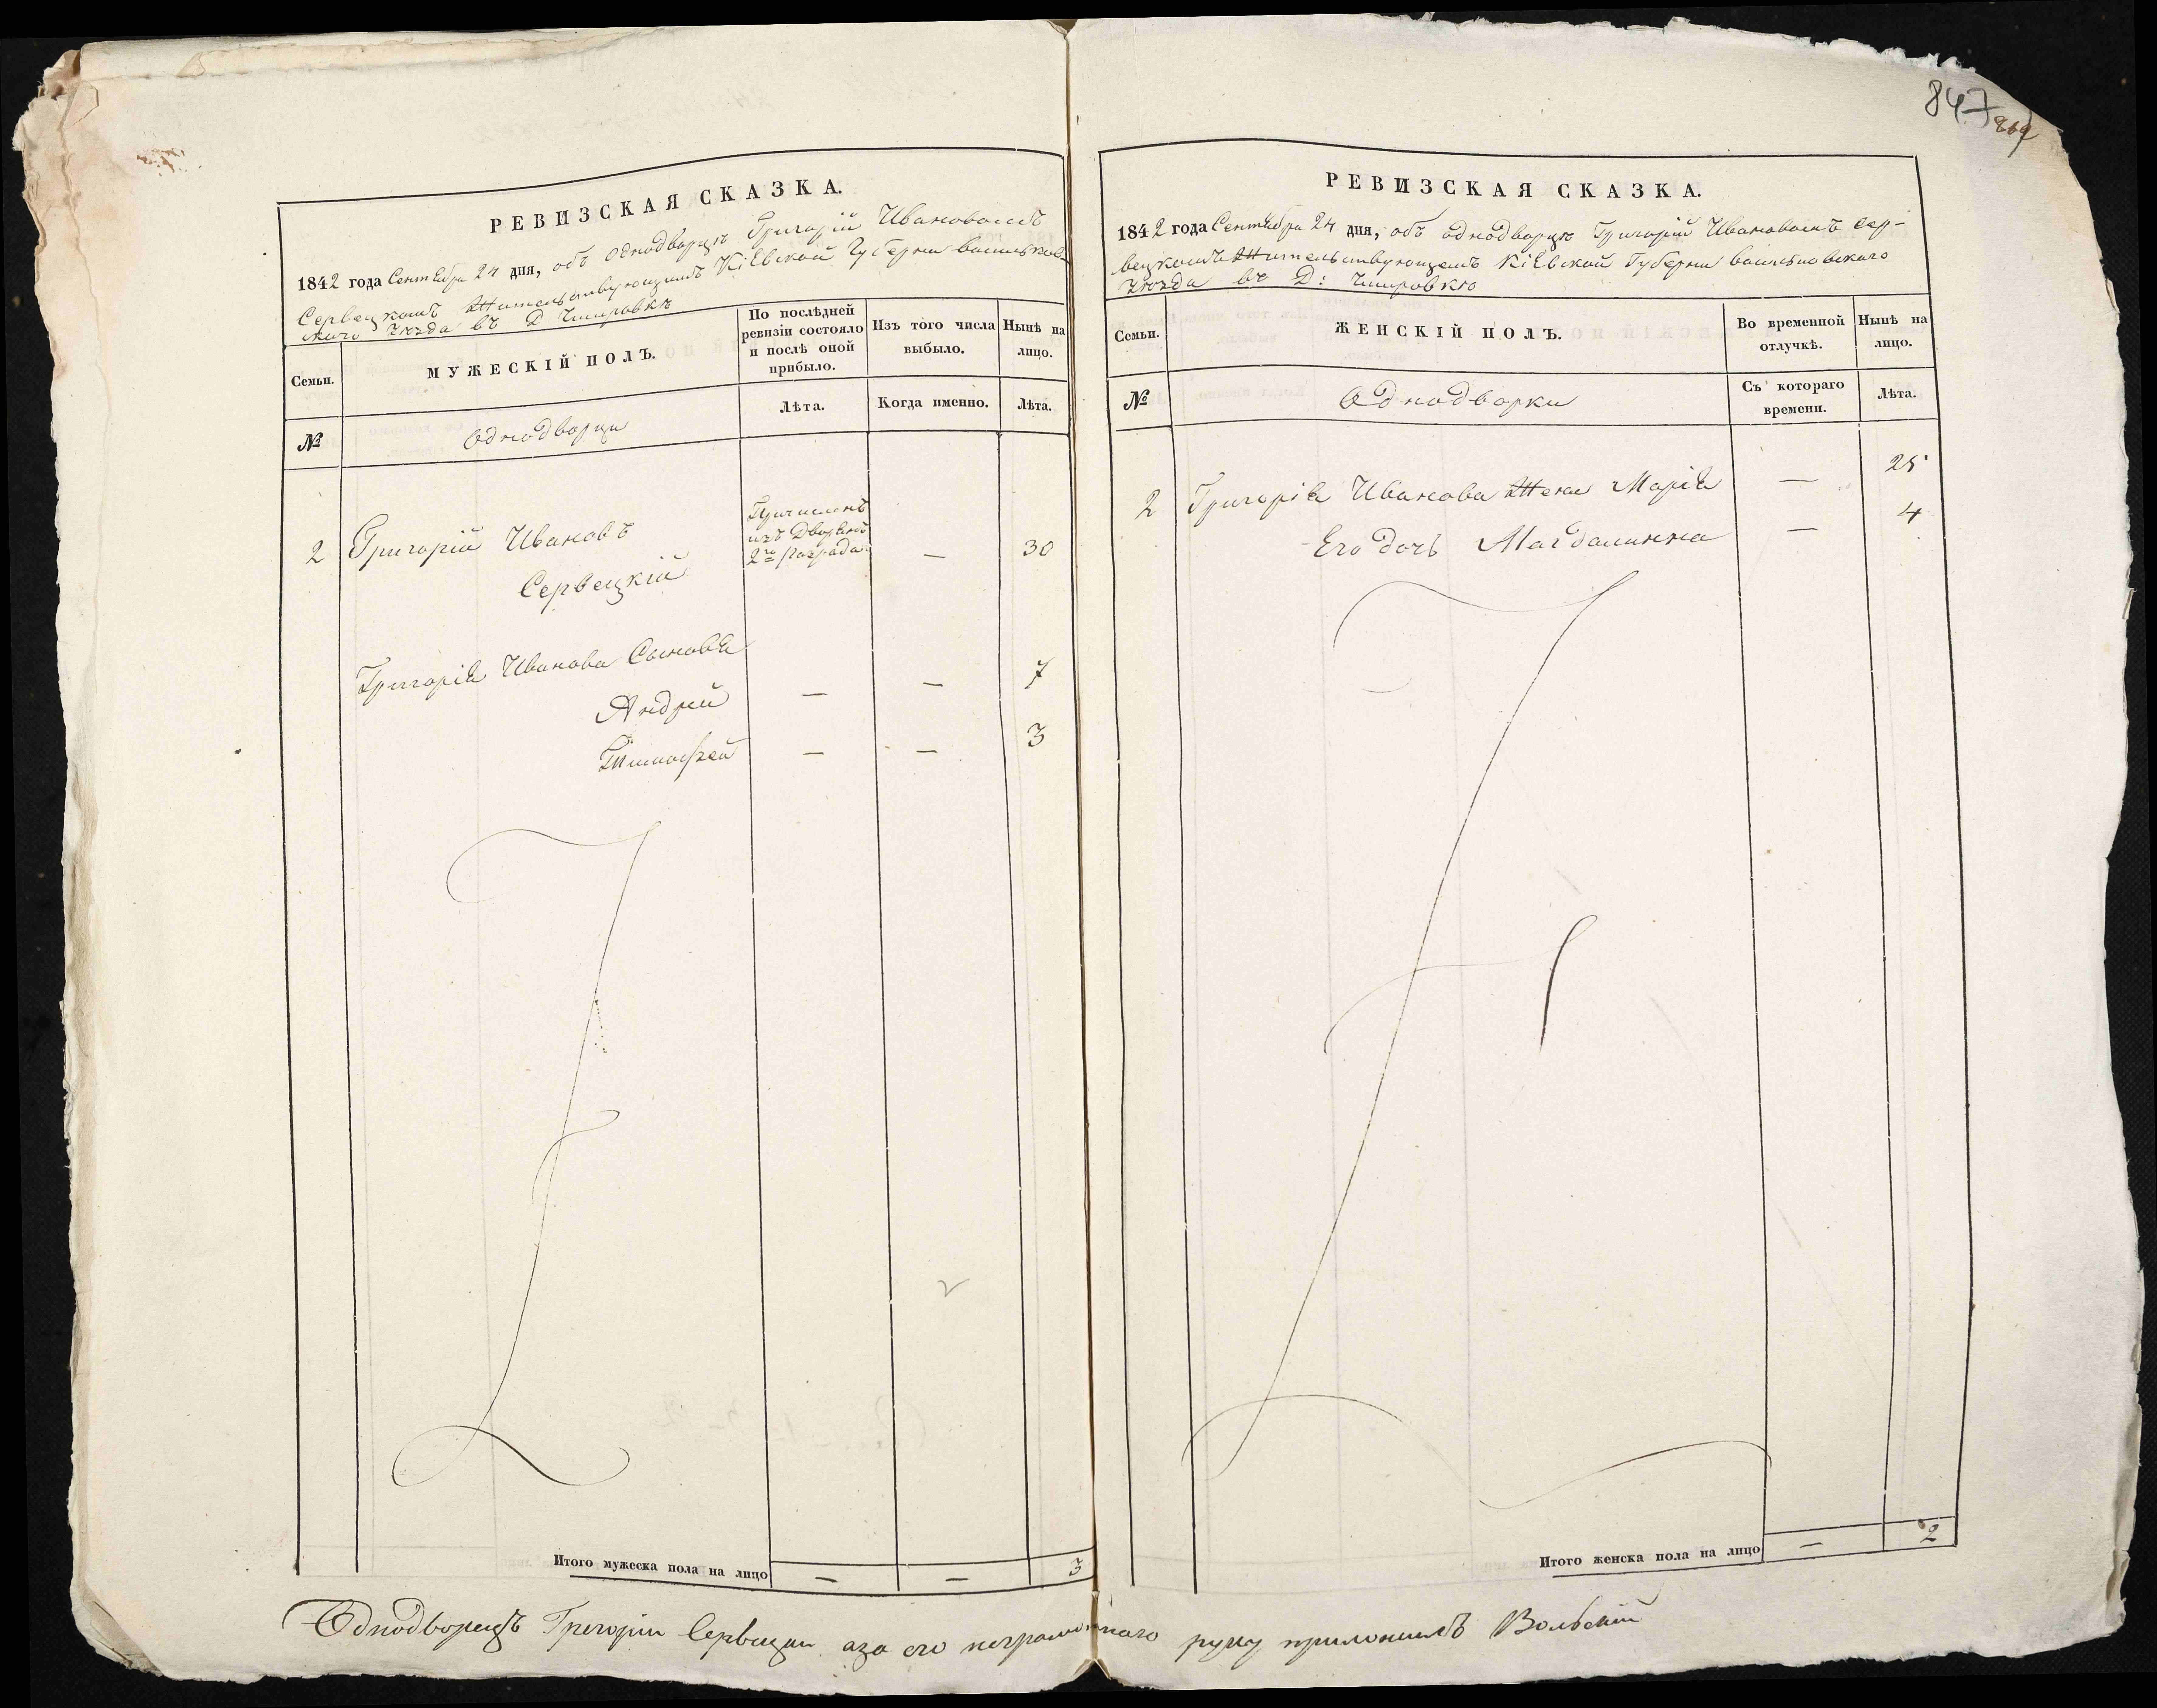 847
869
РЕВИЗСКАЯ СКАЗКА.
1842 года Сентября 24 дня, объ однодворцѣ Григорій Ивановомъ
Сервецкомъ Жительствующимъ Кіевской Губерни васильков-
скаго Уѣзда въ Д
Семьи.
МУЖЕСКІЙ ПОЛЪ.
По послѣдней
ревизіи состояло
и послѣ оной
прибыло.
Изъ того числа
выбыло.
Нынѣ на
лицо.
Лѣта.
Когда именно.
Лѣта.
№
Однодворци
2 Григорій Ивановъ
Сервецкій
Причисленъ
изъ Дворянъ
2го разряда
— 30
Григорія Иванова Сыновя
Андрей — — 7
Тимофей — — 3
Итого мужеска пола на лицо — — 3
РЕВИЗСКАЯ СКАЗКА.
1842 года Сентября 24 дня, объ однодворцѣ Григорій Ивановомъ Сер-
вецкомъ Жительствующемъ Кіевской Губерни васильковского
Уѣзда въ Д:
Семьи.
ЖЕНСКІЙ ПОЛЪ.
Во временной
отлучкѣ.
Нынѣ на
лицо.
№
Однодворки
Съ котораго
времени.
Лѣта.
2 Григорія Иванова Жена Марія — 25
Его дочь Магдалинна — 4
Итого женска пола на лицо — 2
Однодворецъ Григорій Сервецки аза его неграмотнаго руку приложилъ Вольскій